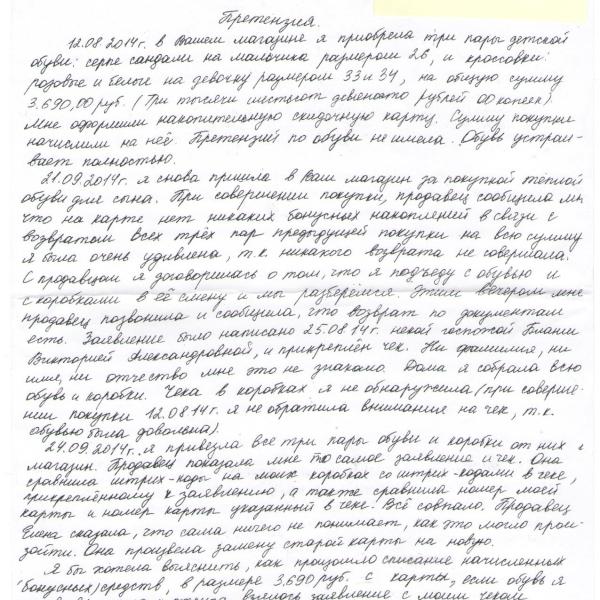 Претензия.
12.08.2014г. в Вашем магазине я приобрела три пары детской
обуви: серые сандали на мальчика размером 26, и кроссовки:
розовые и белые на девочку размером 33 и 34, на общую сумму
3.690,00 руб. (Три тысячи шестьсот девяносто рублей 00 копеек)
Мне оформили накопительную скидочную карту. Сумму покупки
начислили на неё. Претензий по обуви не имела. Обувь устраи-
вает полностью.
21.09.2014г. я снова пришла в Ваш магазин за покупкой тёплой
обуви для сына. При совершении покупки, продавец сообщила мне
что на карте нет никаких бонусных накоплений в связи с
возвратом всех трёх пар предыдущей покупки на всю сумму
я была очень удивлена, т.к. никакого возврата не совершала.
С продавцом я договорилась о том, что я подъеду с обувью и
с коробками в её смену и мы разберёмся. Этим вечером мне
продавец позвонила и сообщила, что возврат по документам
есть. Заявление было написано 25.08.14г. некой госпожой
Викторией Александровной, и прикреплён чек. Ни фамилия, ни
имя, ни отчество мне это не знакомо. Дома я собрала всю
обувь и коробки. Чека в коробках я не обнаружила (при соверше-
нии покупки 12.08.14г. я не обратила внимания на чек, т.к.
обувью была довольна).
24.09.2014г. я привезла все три пары обуви и коробки от них в
магазин. Продавец показала мне то самое заявление и чек. Она
сравнила штрих-коды на моих коробках со штрих-кодами в чеке,
прикреплённому к заявлению, а также сравнила номер моей
карты и номер карты указанный в чеке. Всё совпало. Продавец
Елена сказала, что сама ничего не понимает, как это могло прои-
зойти. Она произвела замену старой карты на новую.
Я бы хотела выяснить, как произошло списание начисленных
(бонусных) средств, в размере 3.690 руб. с карты, если обувь я
взялось заявление с моим чеком